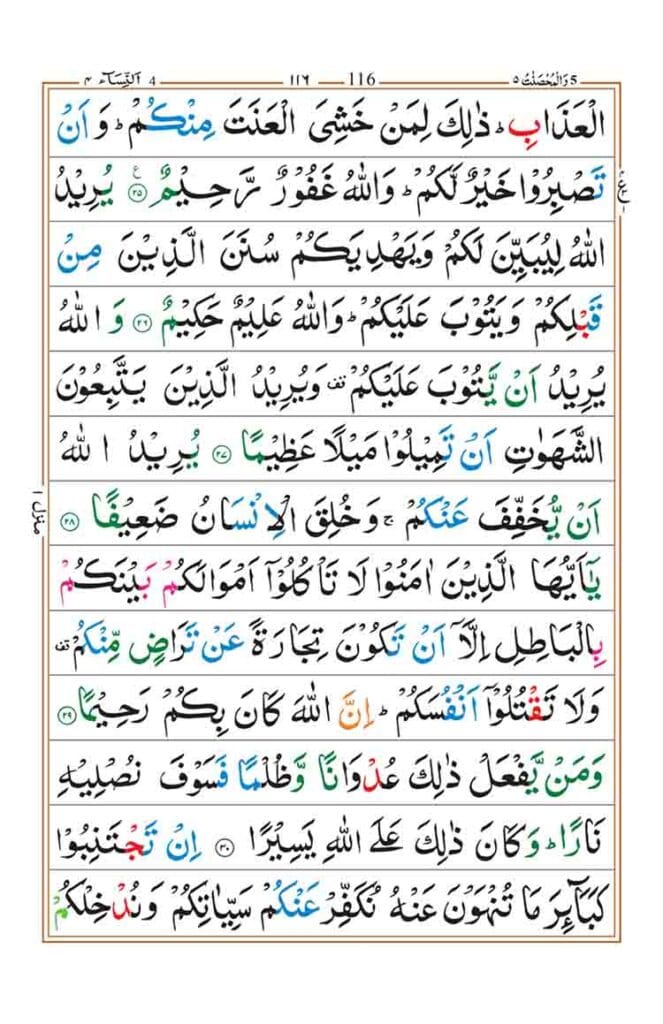 وَالْمُحْصَنٰتُ ٥ 5 116 ١١٦ 4 اَلنِّسَآء ٤
الْعَذَابِ ؕ ذٰلِكَ لِمَنْ خَشِىَ الْعَنَتَ مِنْكُمْ ؕ وَ اَنْ
تَصْبِرُوْا خَيْرٌ لَّكُمْ ؕ وَاللّٰهُ غَفُوْرٌ رَّحِيْمٌ ۟ ٢٥ يُرِيْدُ
ع
اللّٰهُ لِيُبَيِّنَ لَكُمْ وَيَهْدِيَكُمْ سُنَنَ الَّذِيْنَ مِنْ
قَبْلِكُمْ وَيَتُوْبَ عَلَيْكُمْ ؕ وَاللّٰهُ عَلِيْمٌ حَكِيْمٌ ٢٦ وَ اللّٰهُ
يُرِيْدُ اَنْ يَّتُوْبَ عَلَيْكُمْ قف وَيُرِيْدُ الَّذِيْنَ يَتَّبِعُوْنَ
الشَّهَوٰتِ اَنْ تَمِيْلُوْا مَيْلًا عَظِيْمًا ٢٧ يُرِيْدُ اللّٰهُ
اَنْ يُّخَفِّفَ عَنْكُمْ ۚ وَخُلِقَ الْاِنْسَانُ ضَعِيْفًا ٢٨
منزل ١
يٰۤاَيُّهَا الَّذِيْنَ اٰمَنُوْا لَا تَاْكُلُوْۤا اَمْوَالَكُمْ بَيْنَكُمْ
بِالْبَاطِلِ اِلَّاۤ اَنْ تَكُوْنَ تِجَارَةً عَنْ تَرَاضٍ مِّنْكُمْ قف
وَلَا تَقْتُلُوْۤا اَنْفُسَكُمْ ؕ اِنَّ اللّٰهَ كَانَ بِكُمْ رَحِيْمًا ٢٩
وَمَنْ يَّفْعَلْ ذٰلِكَ عُدْوَانًا وَّظُلْمًا فَسَوْفَ نُصْلِيْهِ
نَارًا ؕ وَكَانَ ذٰلِكَ عَلَى اللّٰهِ يَسِيْرًا ٣٠ اِنْ تَجْتَنِبُوْا
كَبَآئِرَ مَا تُنْهَوْنَ عَنْهُ نُكَفِّرْ عَنْكُمْ سَيِّاٰتِكُمْ وَنُدْخِلْكُمْ